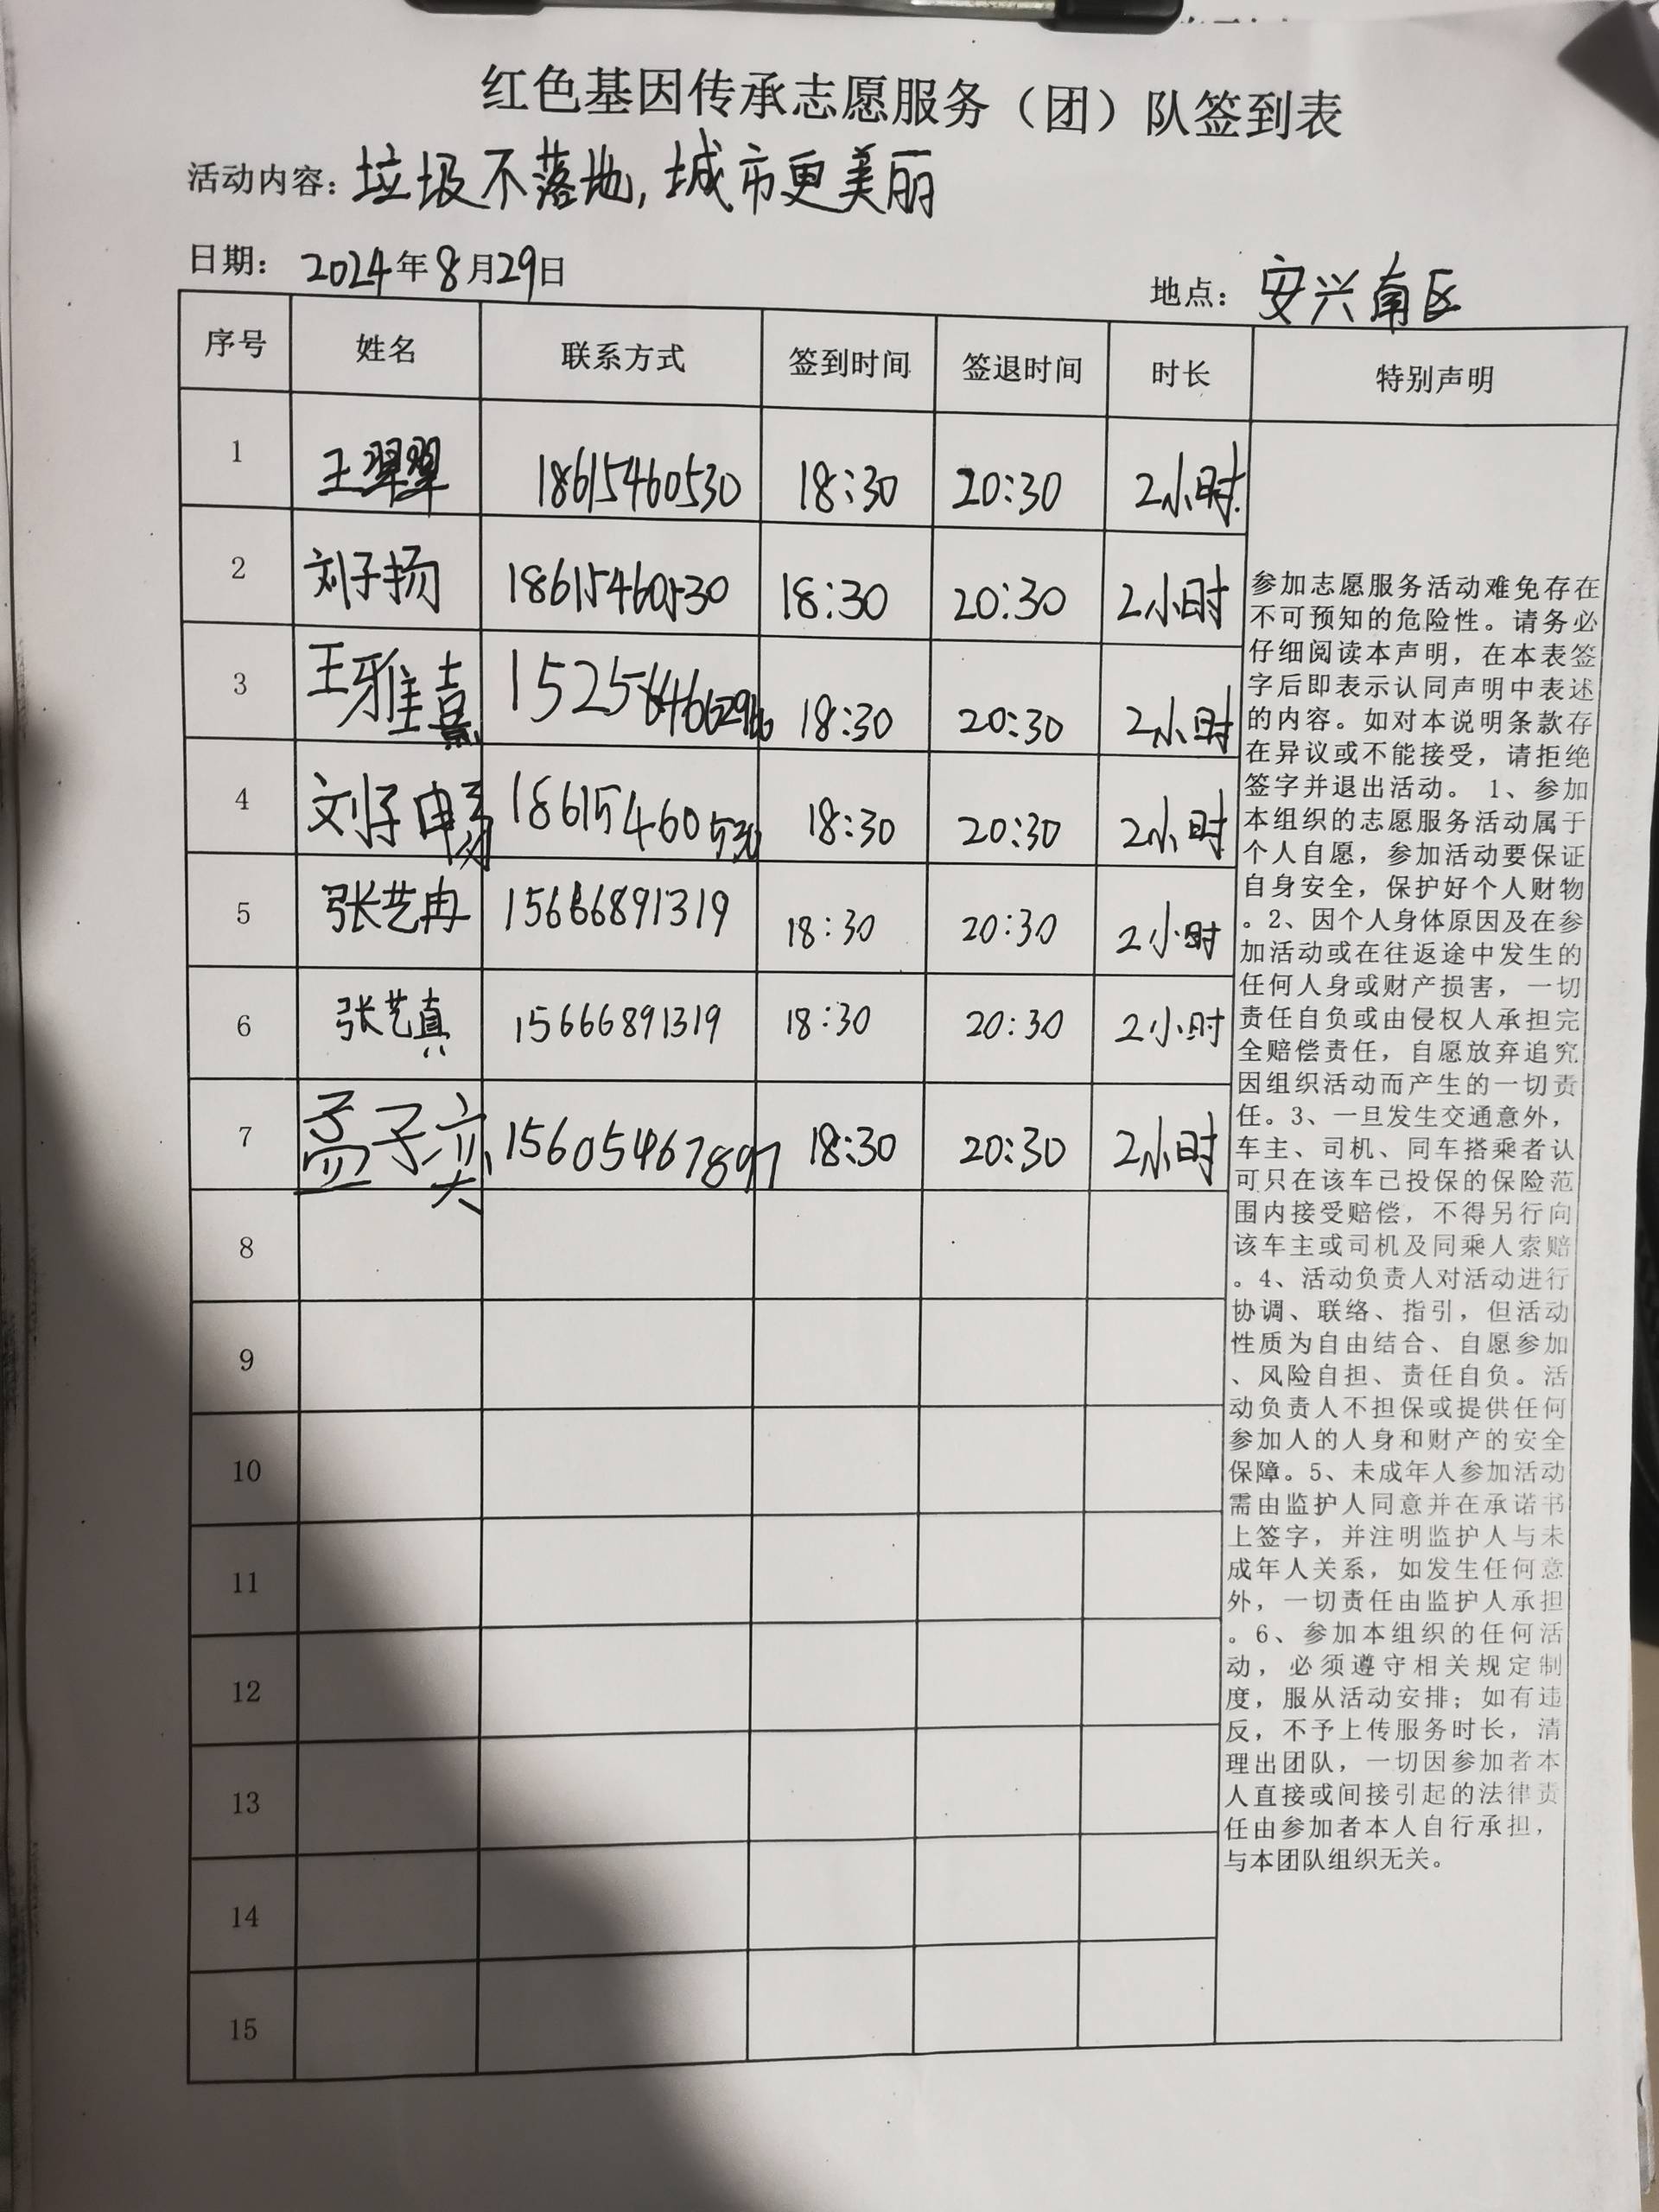 红色基因传承志愿服务（团）队签到表
活动内容：垃圾不落地，城市更美丽
日期：2024年8月29日
地点：安兴南区
序号 姓名 联系方式 签到时间 签退时间 时长 特别声明
1 王翠翠 18615460530 18:30 20:30 2小时
2 刘子扬 18615460530 18:30 20:30 2小时
3 王雅熹 18:30 20:30 2小时
4 刘子畅 18615460530 18:30 20:30 2小时
5 张艺冉 15666891319 18:30 20:30 2小时
6 张艺真 15666891319 18:30 20:30 2小时
7 孟子奕 15605467897 18:30 20:30 2小时
8
9
10
11
12
13
14
15
参加志愿服务活动难免存在
不可预知的危险性。请务必
仔细阅读本声明，在本表签
字后即表示认同声明中表述
的内容。如对本说明条款存
在异议或不能接受，请拒绝
签字并退出活动。 1、参加
本组织的志愿服务活动属于
个人自愿，参加活动要保证
自身安全，保护好个人财物
。2、因个人身体原因及在参
加活动或在往返途中发生的
任何人身或财产损害，一切
责任自负或由侵权人承担完
全赔偿责任，自愿放弃追究
因组织活动而产生的一切责
任。3、一旦发生交通意外，
车主、司机、同车搭乘者认
可只在该车已投保的保险范
围内接受赔偿，不得另行向
该车主或司机及同乘人索赔
。4、活动负责人对活动进行
协调、联络、指引，但活动
性质为自由结合、自愿参加
、风险自担、责任自负。活
动负责人不担保或提供任何
参加人的人身和财产的安全
保障。5、未成年人参加活动
需由监护人同意并在承诺书
上签字，并注明监护人与未
成年人关系，如发生任何意
外，一切责任由监护人承担
。6、参加本组织的任何活
动，必须遵守相关规定制
度，服从活动安排；如有违
反，不予上传服务时长，清
理出团队，一切因参加者本
人直接或间接引起的法律责
任由参加者本人自行承担，
与本团队组织无关。